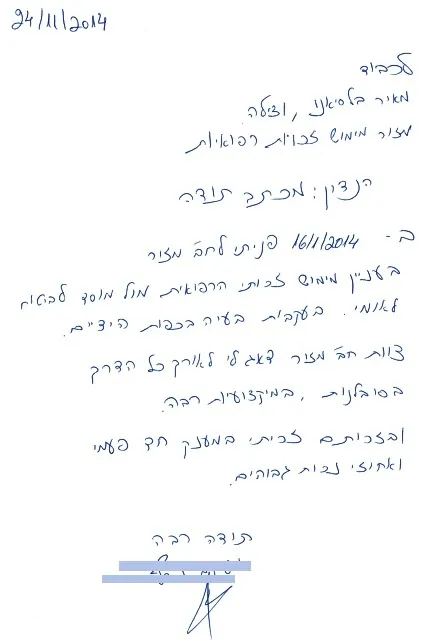 24/11/2014
לכבוד
מאיר בלסיאנו, וצילה.
מזור מימוש זכויות רפואיות
הנדון: מכתב תודה
ב- 16/1/2014 פניתי לחב' מזור
בעניין מימוש זכותי הרפואית מול מוסד לביטוח
לאומי. בעקבות בעיה בכפות הידיים.
צוות חב' מזור דאג לי לאורך כל הדרך
בסובלנות, במיקצועיות רבה.
ובזכותם זכיתי במענק חד פעמי
ואחוזי נכות גבוהים.
תודה רבה